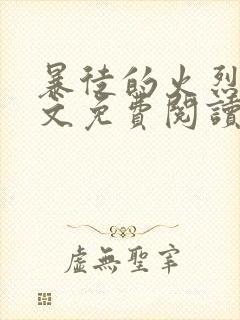 暴徒的火烈
文免費閱讀
虛無聖宰